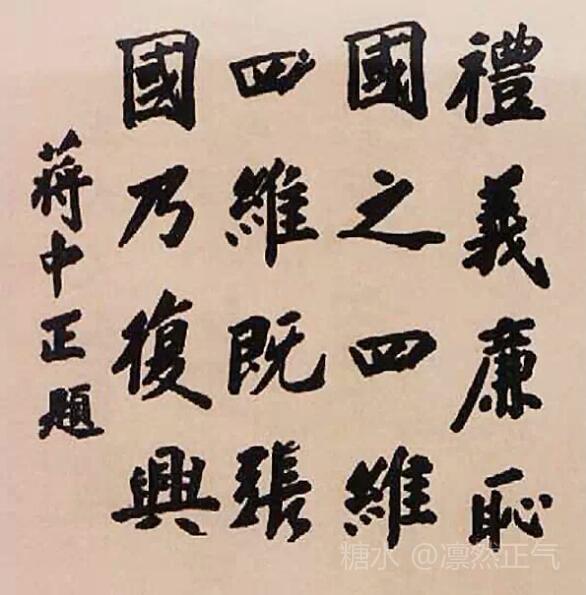 禮義廉恥
國之四維
四維既張
國乃復興
蔣中正題
糖水 @凛然正气